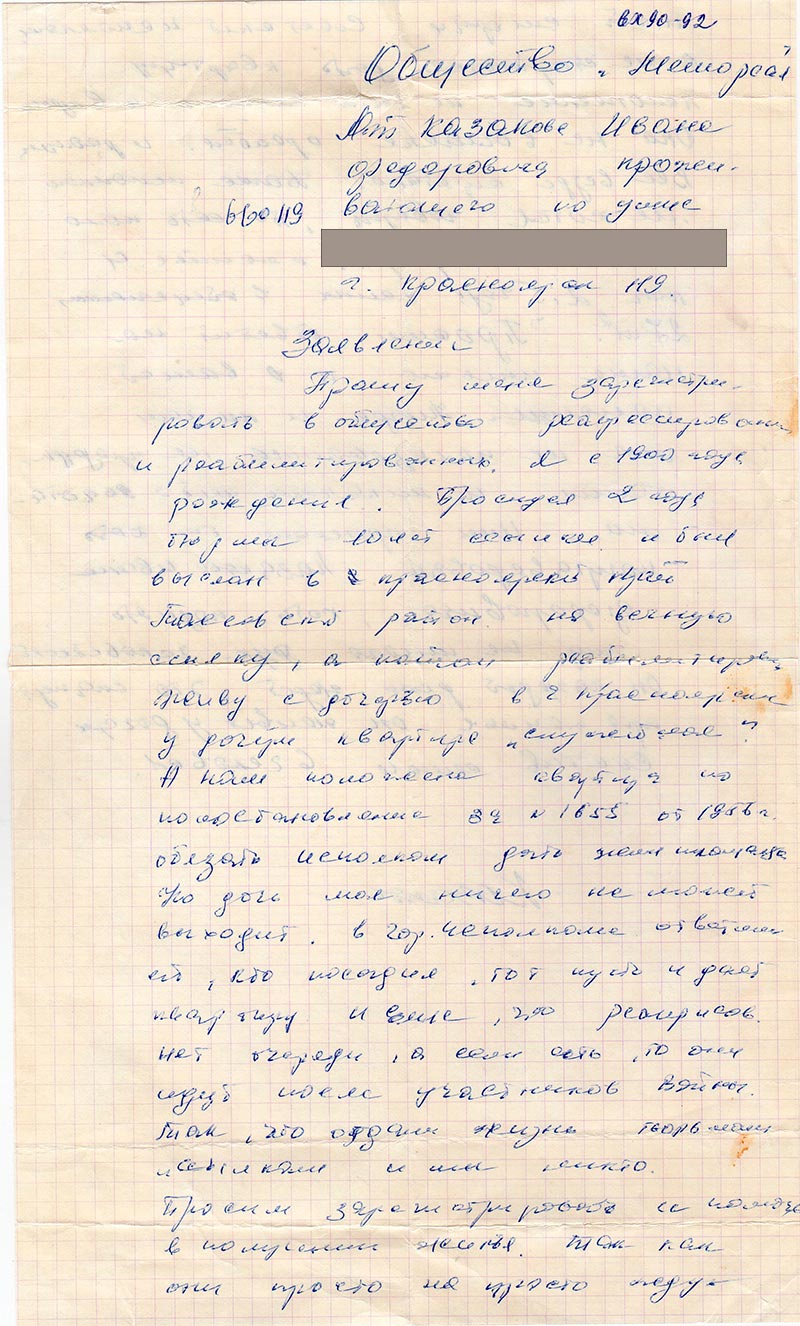 вх 90-92
Общество „Мемориал
От Казакова Ивана
Федоровича прожи-
660119 вающего по улице
г. Красноярск 119.
Заявление
Прошу меня зарегистри-
ровать в общество репрессирован
и реабилитированных. Я с 1900 года
рождения. Просидел 2 года
тюрьмы 10 лет ссылке и был
выслан в Красноярский край
Тасеевский район на вечную
ссылку, а потом реабилитирован
Живу с дочерью в г Красноярске
у дочери квартира „служебная"
А нам положена квартира по
постановление за № 1655 от 1956 г.
обязать исполком дать жил площадь
Но дочь моя ничего не может
выходит. в гор.исполкоме ответили
ей, кто посадил, тот пусть и дает
квартиру и еще, что реприсов.
нет очереди, а если есть, то они
идут после участников войны.
Так, что отдали жизнь тюрьмам
ссылкам и мы никто.
Просим зарегистрировать и помочь
в получении жилья. Так как
они просто на просто